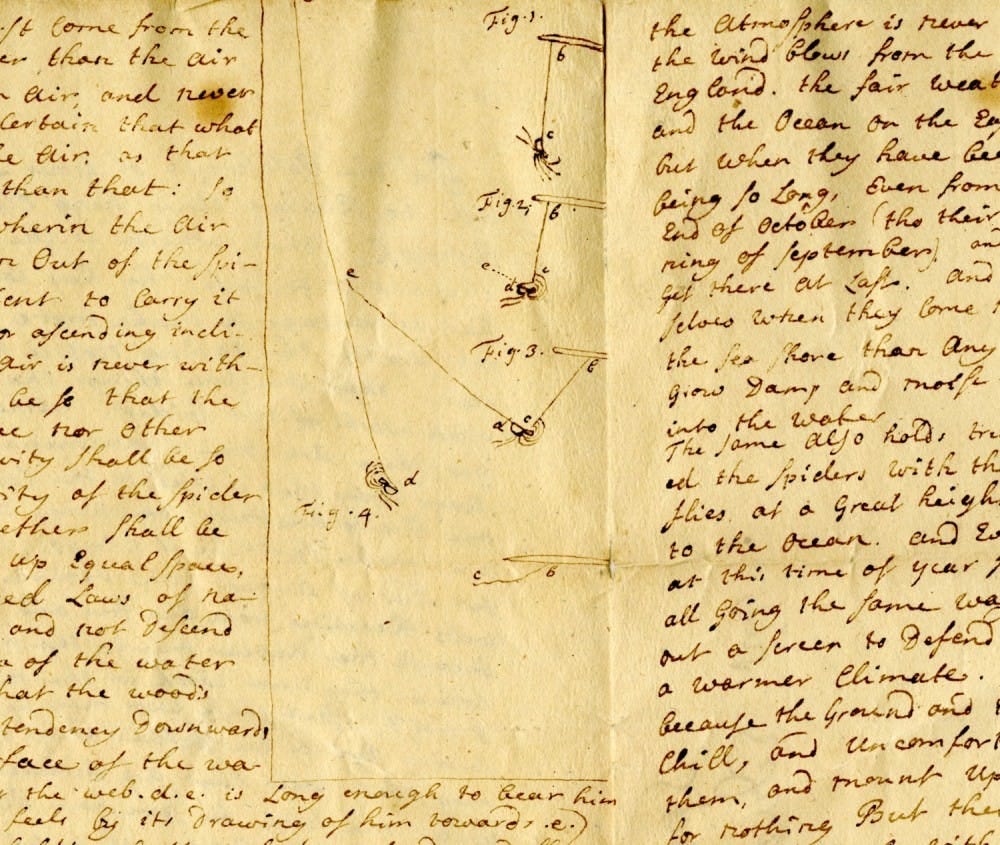 st come from the
er, than the air
n air, and never
Certain that what
he air, as that
than that: so
wherin the air
n Out of the spi-
ient to Carry it
or ascending incli-
air is never with-
be so that the
ce nor Other
vity shall be so
ity of the spider
ether shall be
up Equal space,
ed Laws of na-
and not Descend
a of the water
hat the woods
tendency Downwards
face of the wa-
r the web.d.e. is Long enough to bear him
feels by its Drawing of him towards .e.)
Fig.1.
b
c
Fig.2.
b
e
c
d
Fig.3.
b
e
c
d
d
Fig.4.
c
b
the atmosphere is never
the wind blows from the
England. the fair weat
and the Ocean on the Ea
but when they have bee
being so Long, Even from
End of October (tho their
ning of september) and
get there at Last. and
selves when they come
the sea shore than any
Grow Damp and moist
into the water
The same also holds tru
ed the spiders with th
flies at a Great heigh
to the Ocean. and Ev
at this time of year
all Going the same wa
out a screen to Defend
a warmer Climate.
because the Ground and
Chill, and Uncomfort
them, and mount up
for nothing But the